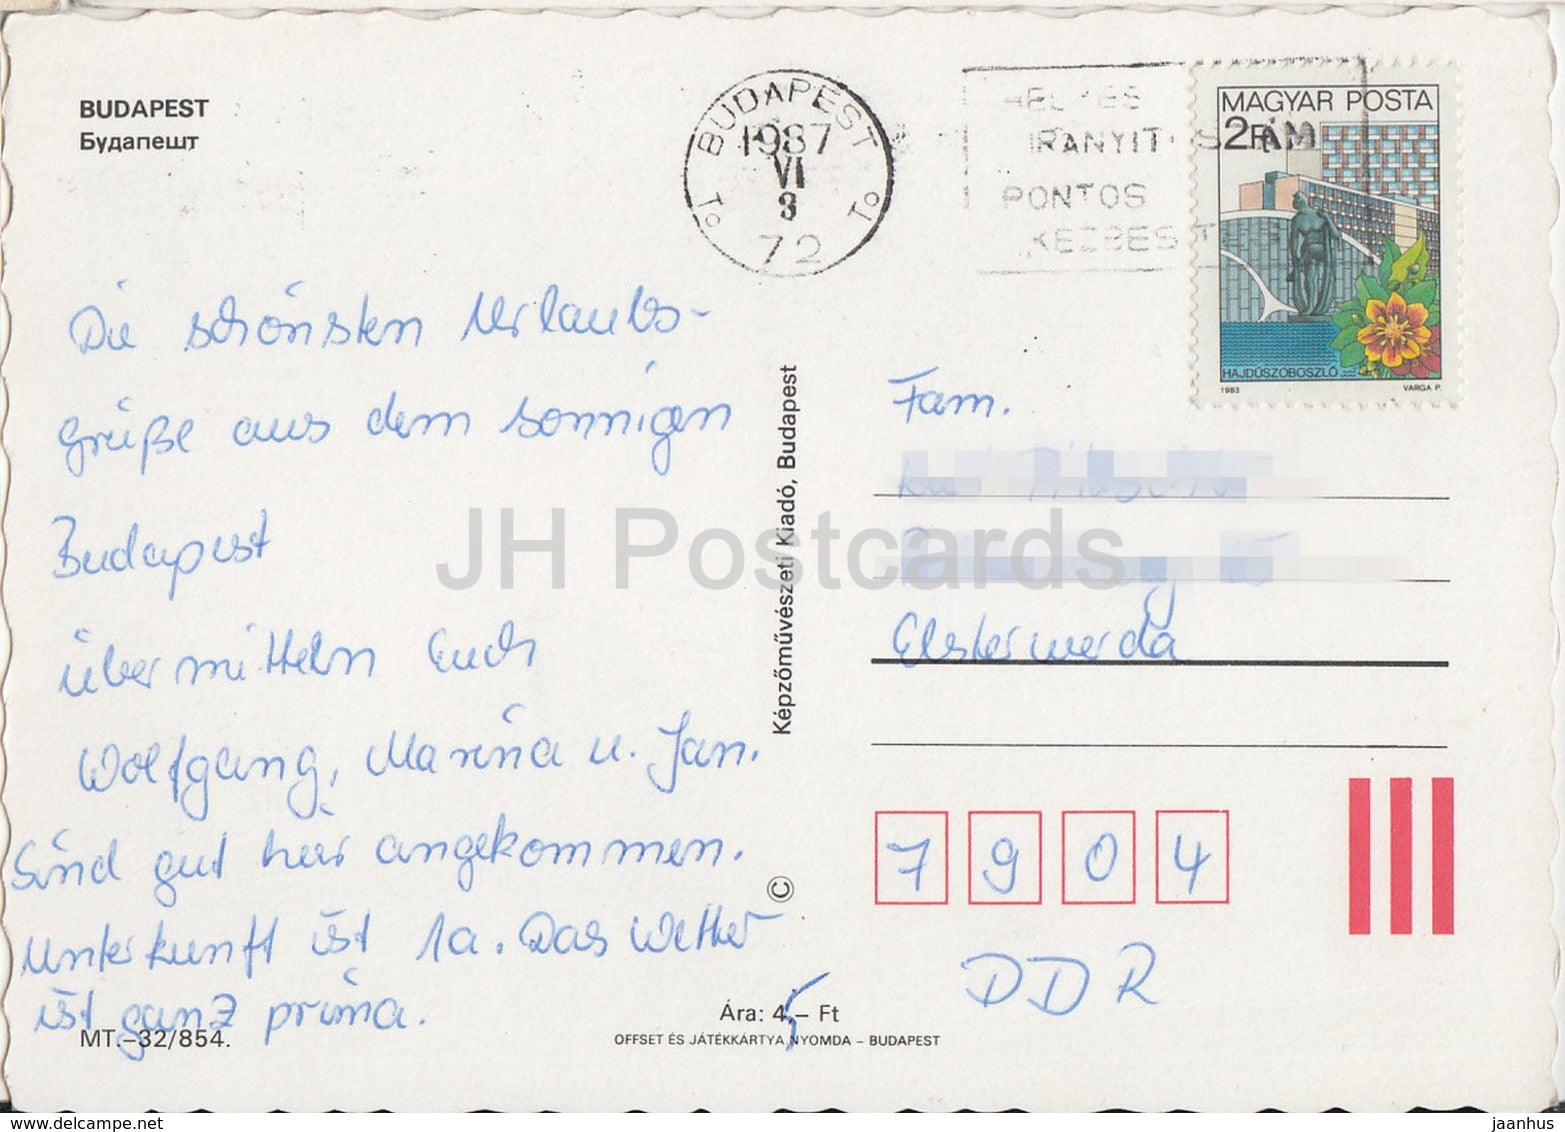 BUDAPEST
Будапешт
BUDAPEST
1987
VI
3
72
IRANYIT
PONTOS
MAGYAR POSTA
HAJDÚSZOBOSZLÓ
1983 VARGA P.
Die schönsten Urlaubs-
grüße aus dem sonnigen
Budapest
übermitteln Euch
Wolfgang, Marina u. Jan.
Sind gut hier angekommen.
Unterkunft ist 1a. Das Wetter
ist ganz prima.
MT.–32/854.
Képzőművészeti Kiadó, Budapest
©
Ára: 4,– Ft
5
OFFSET ÉS JÁTÉKKÁRTYA NYOMDA – BUDAPEST
Fam.
Elsterwerda
7 9 0 4
DDR
JH Postcards
www.delcampe.net
jaanhus